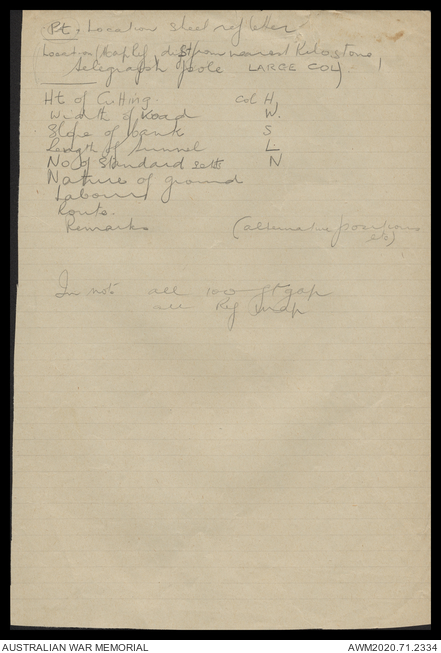 Pt, Location sheet ref letter
Location (Map ref, dist from nearest Kilo stone,
telegraph pole LARGE COL)
Ht of Cutting. Col H,
Width of Road W.
Slope of bank S
Length of tunnel L.
No of Standard sets N
Nature of ground
Labour
Route.
Remarks (alternative positions
etc)
In not all 100 ft gap
all Ref map
AUSTRALIAN WAR MEMORIAL
AWM2020.71.2334